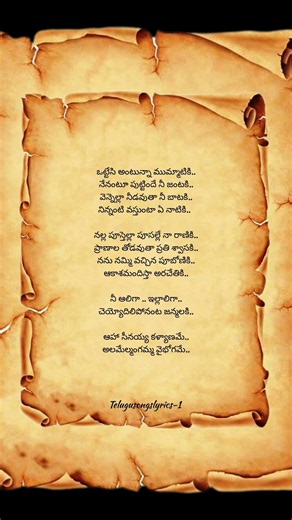 ఒట్టేసి అంటున్నా ముమ్మాటికి..
నేనంటూ పుట్టిందే నీ జంటకి..
వెన్నెల్లా నీడవుతా నీ బాటకి..
నిన్నంటి వస్తుంటా ఏ నాటికి..
నల్ల పూస్తెల్లా పూసల్లే నా రాణికి..
ప్రాణాల తోడవుతా ప్రతి శ్వాసకి..
నను నమ్మి వచ్చిన పూబోణికి..
ఆకాశమందిస్తా అరచేతికి..
నీ ఆలిగా .. ఇల్లాలిగా..
చెయ్యొదిలిపోనంట జన్మలకి..
ఆహా సీనయ్య కళ్యాణమే..
అలమేల్మంగమ్మ వైభోగమే..
Telugusongslyrics-1